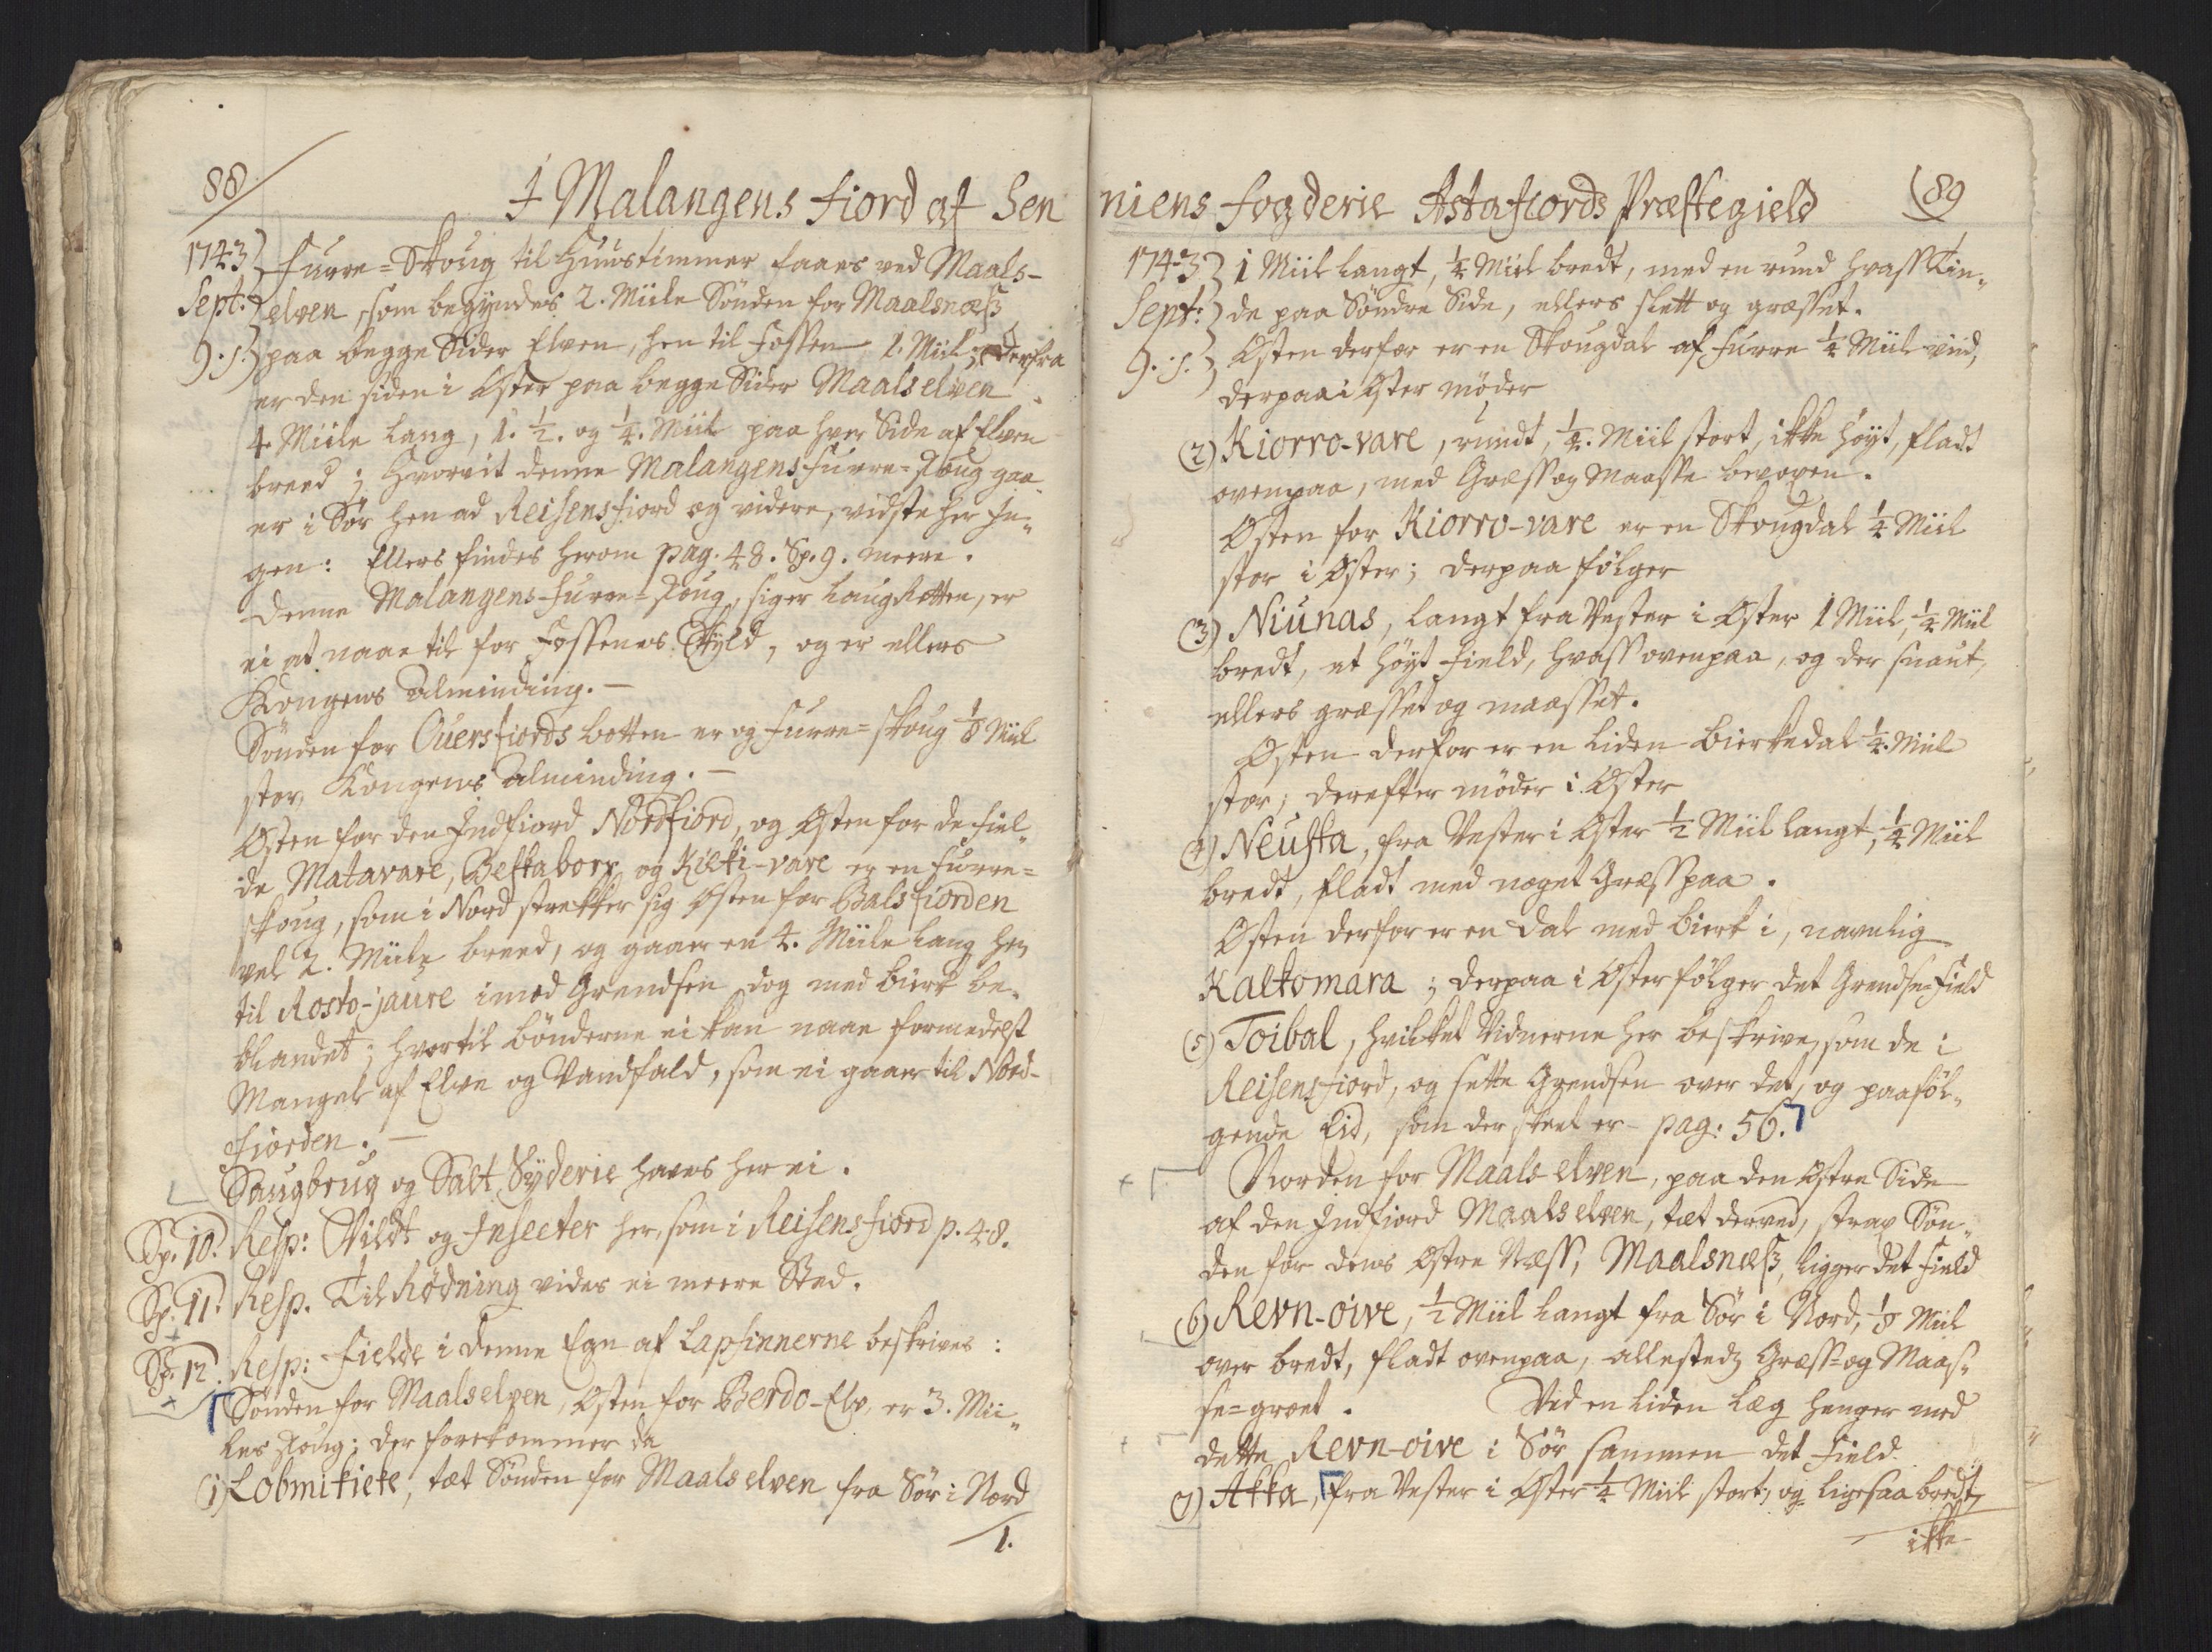 88
I Malangens Fiord af Sen
1743 Furre=Skoug til Huustimmer faaes ved Maals-
Sept: elven, som begyndes 2. Miile Sönden for Maalsnæss
9. s. paa begge Sider Elven, hen til Fossen 1. Miil; Derfra
er den siden i Öster paa begge Sider Maalselven
4 Miile lang, 1. ½. og ¼. Miil paa hver Side af Elven
breed; Hvorvit denne Malangens Furre=Skoug gaa-
er i Sör hen ad Reisensfiord og videre, vidste her In-
gen: Ellers findes herom pag. 48. Sp. 9. meere.
Denne Malangens-Furre=Skoug, siger LaugRetten, er
ei at naae til for Fossenes Skyld, og er ellers
Kongens Alminding. —
Sönden for Ouersfiords botten er og Furre=skoug ⅛ Miil
stor, Kongens Alminding. —
Östen for den Indfiord Nordfiord, og Östen for de Fiel-
de Matavare, Beskabory og Kilti-vare er en Furre=
skoug, som i Nord strekker sig Östen for Balsfiorden
vel 2. Miile breed, og gaaer en 4. Miile lang hen
til Rosto-jaure imod Grendsen dog med Birk be-
blandet; hvortil Bönderne ei kan naae formedelst
Mangel af Elve og Vandfald, som ei gaaer til Nord-
fiorden. —
Saugbrug og Salt Syderie haves her ei.
Sp. 10. Resp: Vildt og Insecter her, som i Reisensfiord p. 48.
Sp. 11. Resp. Til Rödning vides ei meere Sted.
Sp. 12. Resp: Fielde i denne Egn af Lapfinnerne beskrives:
Sönden for Maalselven, Östen for Berdo-Elv, er 3. Mii-
les Skoug; der forekommer da
(1) Lobmikieke, tæt Sönden for Maalselven fra Sör i Nord
1.
niens Fogderie Astafiords Præstegield
89
1743 1 Miil langt, ¼ Miil bredt, med en rund hvass Tin-
Sept: de paa Söndre Side, ellers slett og græsset.
9. s. Östen derfor er en Skougdal af Furre ¼ Miil viid,
derpaa i Öster möder
(2) Kiorro-vare, rundt, ¼. Miil stort, ikke höyt, fladt
ovenpaa, med Græss og Maasse bevoxen.
Östen for Kiorro-vare er en Skougdal ¼ Miil
stor i Öster; derpaa fölger
(3) Niunas, langt fra Vester i Öster 1 Miil, ¼ Miil
bredt, et höyt Field, hvass ovenpaa, og der snaut,
ellers græsset og maasset.
Östen derfor er en liden Bierkedal ¼. Miil
stor; derefter möder i Öster
(4) Neuska, fra Vester i Öster ½ Miil langt, ¼ Miil
bredt, fladt med noget Græss paa.
Östen derfor er en Dal med Bierk i, navnlig
Kaltomara; derpaa i Öster fölger det Grendse=Field
(5) Toibal, hvilket Vidnerne her beskrive, som de i
Reisensfiord, og sette Grendsen over det, og paaföl-
gende Eid, som der skeet er pag: 56.
Norden for Maalselven, paa den Östre Side
af den Indfiord Maalselven, tæt derved, strax Sön-
den for dens Östre Næss, Maalsnæss, ligger det Field
(6) Revn-oive, ½ Miil langt fra Sör i Nord, ⅛ Miil
over bredt, fladt ovenpaa, allestedz Græss=og Maas-
se=groet. Ved en liden Læg henger med
dette Revn-oive i Sör sammen det Field
(7) Akka, fra Vester i Öster ¼ Miil stort, og ligesaa bredt,
ikke